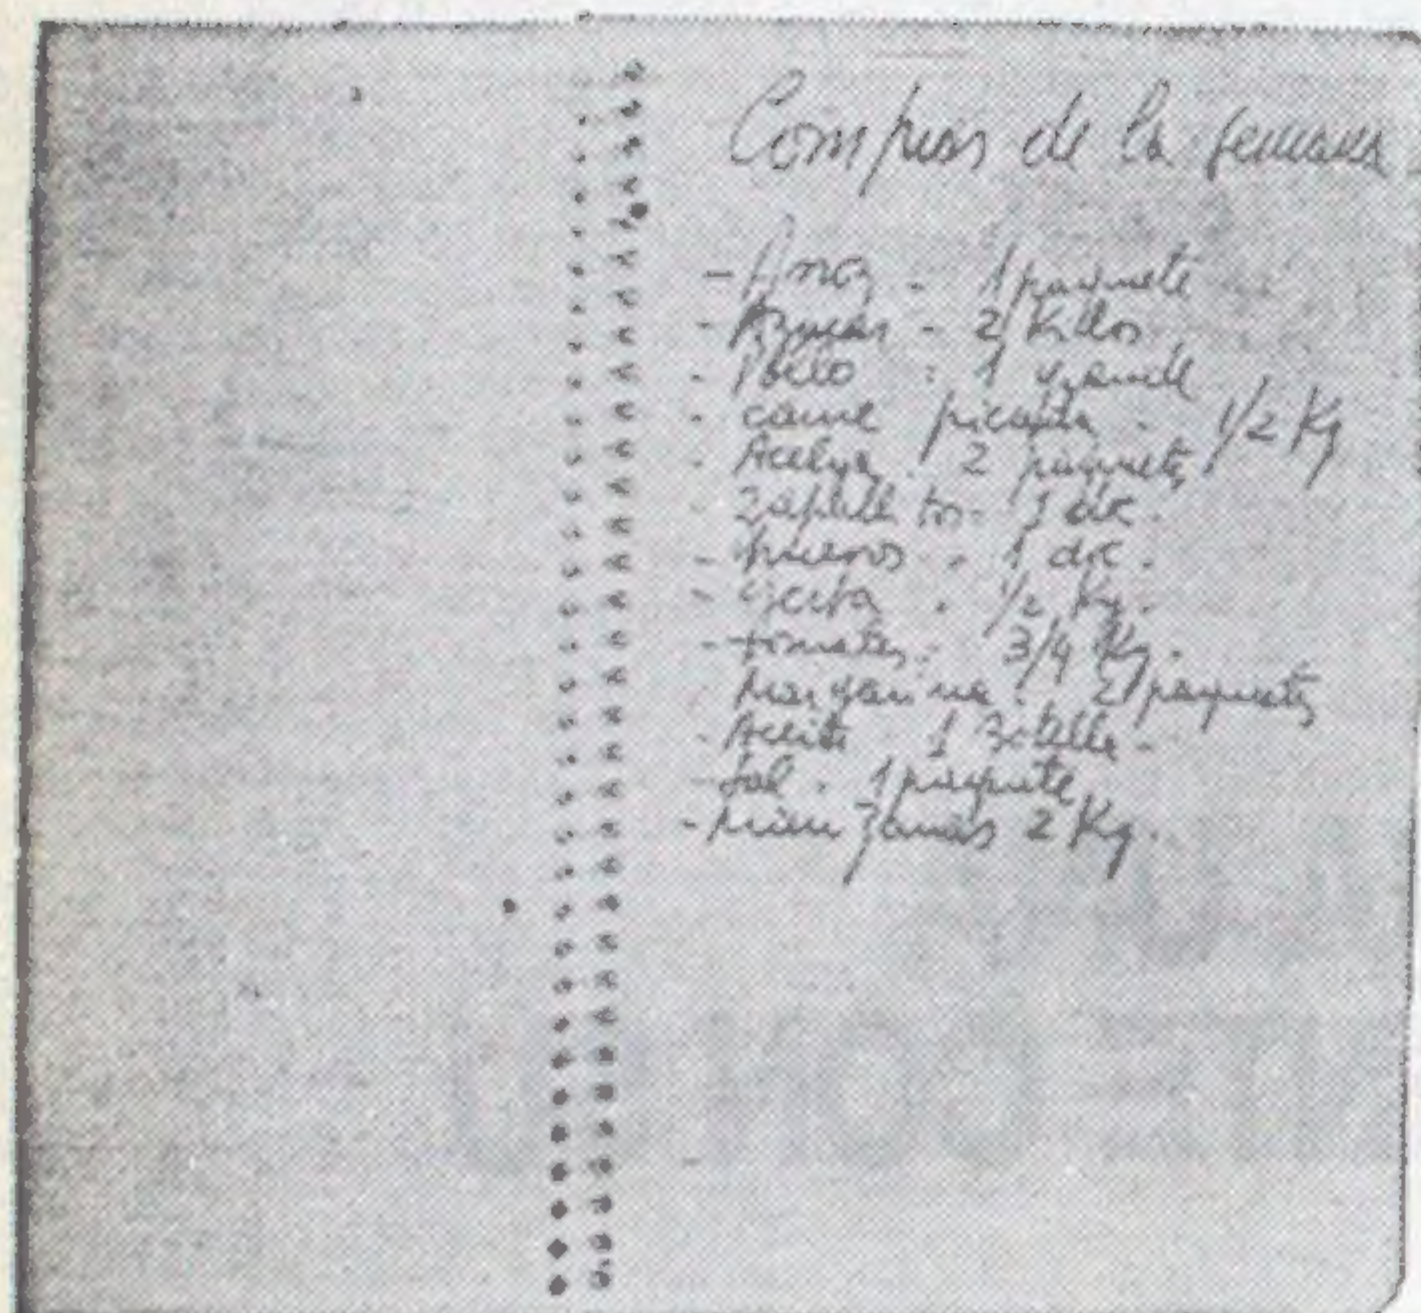 Compras de la semana
- Arroz - 1 paquete
- Azúcar - 2 Killos
- Pollo : 1 grande
- carne picada - 1/2 Kg
- Acelga . 2 paquetes
- Zapallitos - 1 doc.
- huevos - 1 doc.
- . 1/2 Kg.
- tomates : 3/4 Kg.
- Margarina : 2 paquetes
- Aceite - 1 Botella -
- Sal . 1 paquete
- Manzanas 2 Kg.